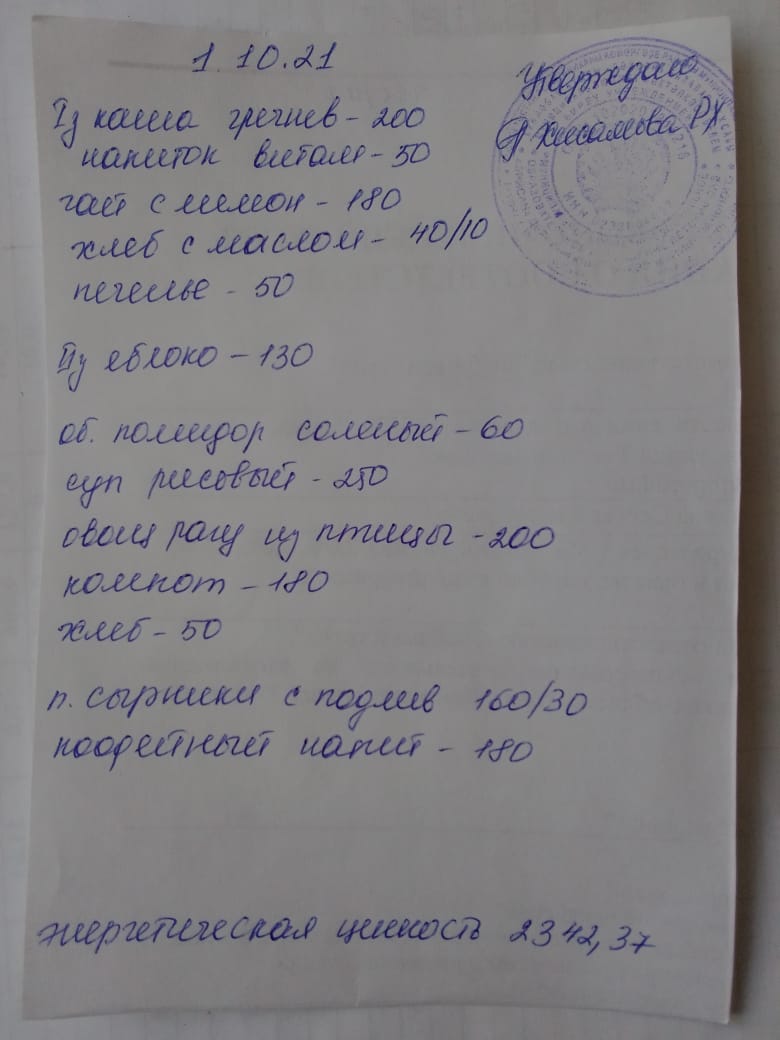 1 10.21
Утверждаю
Хисамова РХ
Iз каша гречнев - 200
напиток витам - 50
чай с лимон - 180
хлеб с маслом - 40/10
печенье - 50
IIз яблоко - 130
об. помидор соленый - 60
суп рисовый - 250
овощ рагу из птицы - 200
компот - 180
хлеб - 50
п. сырники с подлив 160/30
кофейный напит - 180
энергетическая ценность 2342,37